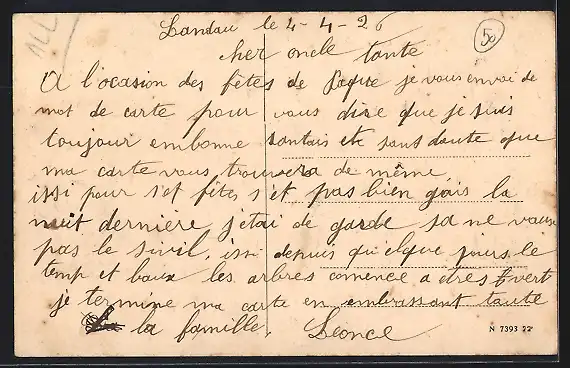 Landau le 4-4-26
50
cher oncle tante
A l'ocasion des fêtes de Paque je vous envoi de
mot de carte pour vous dire que je suis
toujour embonne santais etc sans doute que
ma carte vous trouvera de même
issi pour s'et fêtes s'et pas bien gais la
nuit dernière j'etai de garde sa ne vaux
pas le sivil, issi depuis quelque jours le
temp et baux les arbres comence a etres vert
je termine ma carte en embrassant toute
la famille. Leonce
N 7393 22